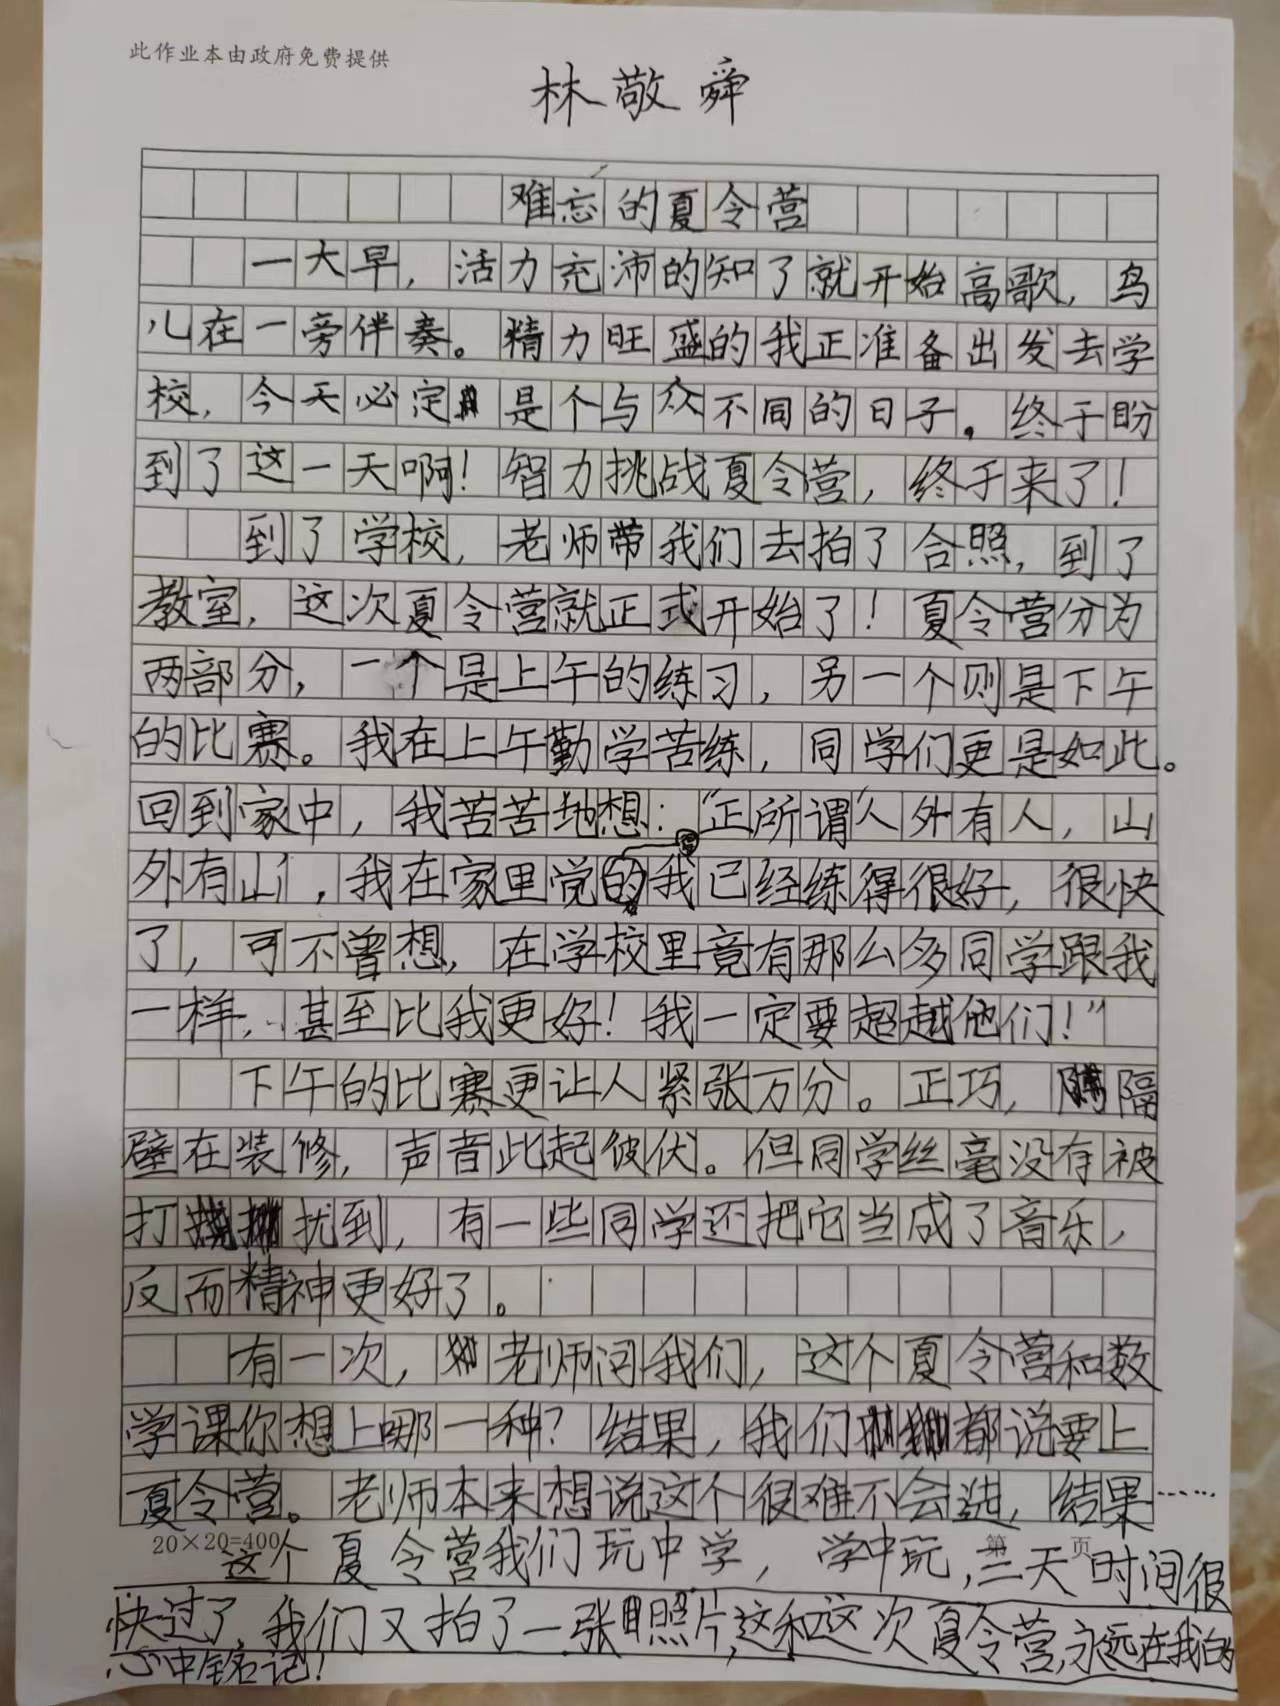 此作业本由政府免费提供
林敬舜
难忘的夏令营
一大早，活力充沛的知了就开始高歌，鸟
儿在一旁伴奏。精力旺盛的我正准备出发去学
校，今天必定是个与众不同的日子。终于盼
到了这一天啊！智力挑战夏令营，终于来了！
到了学校，老师带我们去拍了合照，到了
教室，这次夏令营就正式开始了！夏令营分为
两部分，一个是上午的练习，另一个则是下午
的比赛。我在上午勤学苦练，同学们更是如此。
回到家中，我苦苦地想：“正所谓‘人外有人，山
外有山’，我在家里觉得我已经练得很好，很快
了，可不曾想，在学校里竟有那么多同学跟我
一样，甚至比我更好！我一定要超越他们！”
下午的比赛更让人紧张万分。正巧，隔
壁在装修，声音此起彼伏。但同学丝毫没有被
打扰到，有一些同学还把它当成了音乐，
反而精神更好了。
有一次，老师问我们，这个夏令营和数
学课你想上哪一种？结果，我们都说要上
夏令营。老师本来想说这个很难不会选，结果……
20×20=400
第 页
这个夏令营我们玩中学，学中玩，三天时间很
快过了，我们又拍了一张照片，这和这次夏令营，永远在我的
心中铭记！